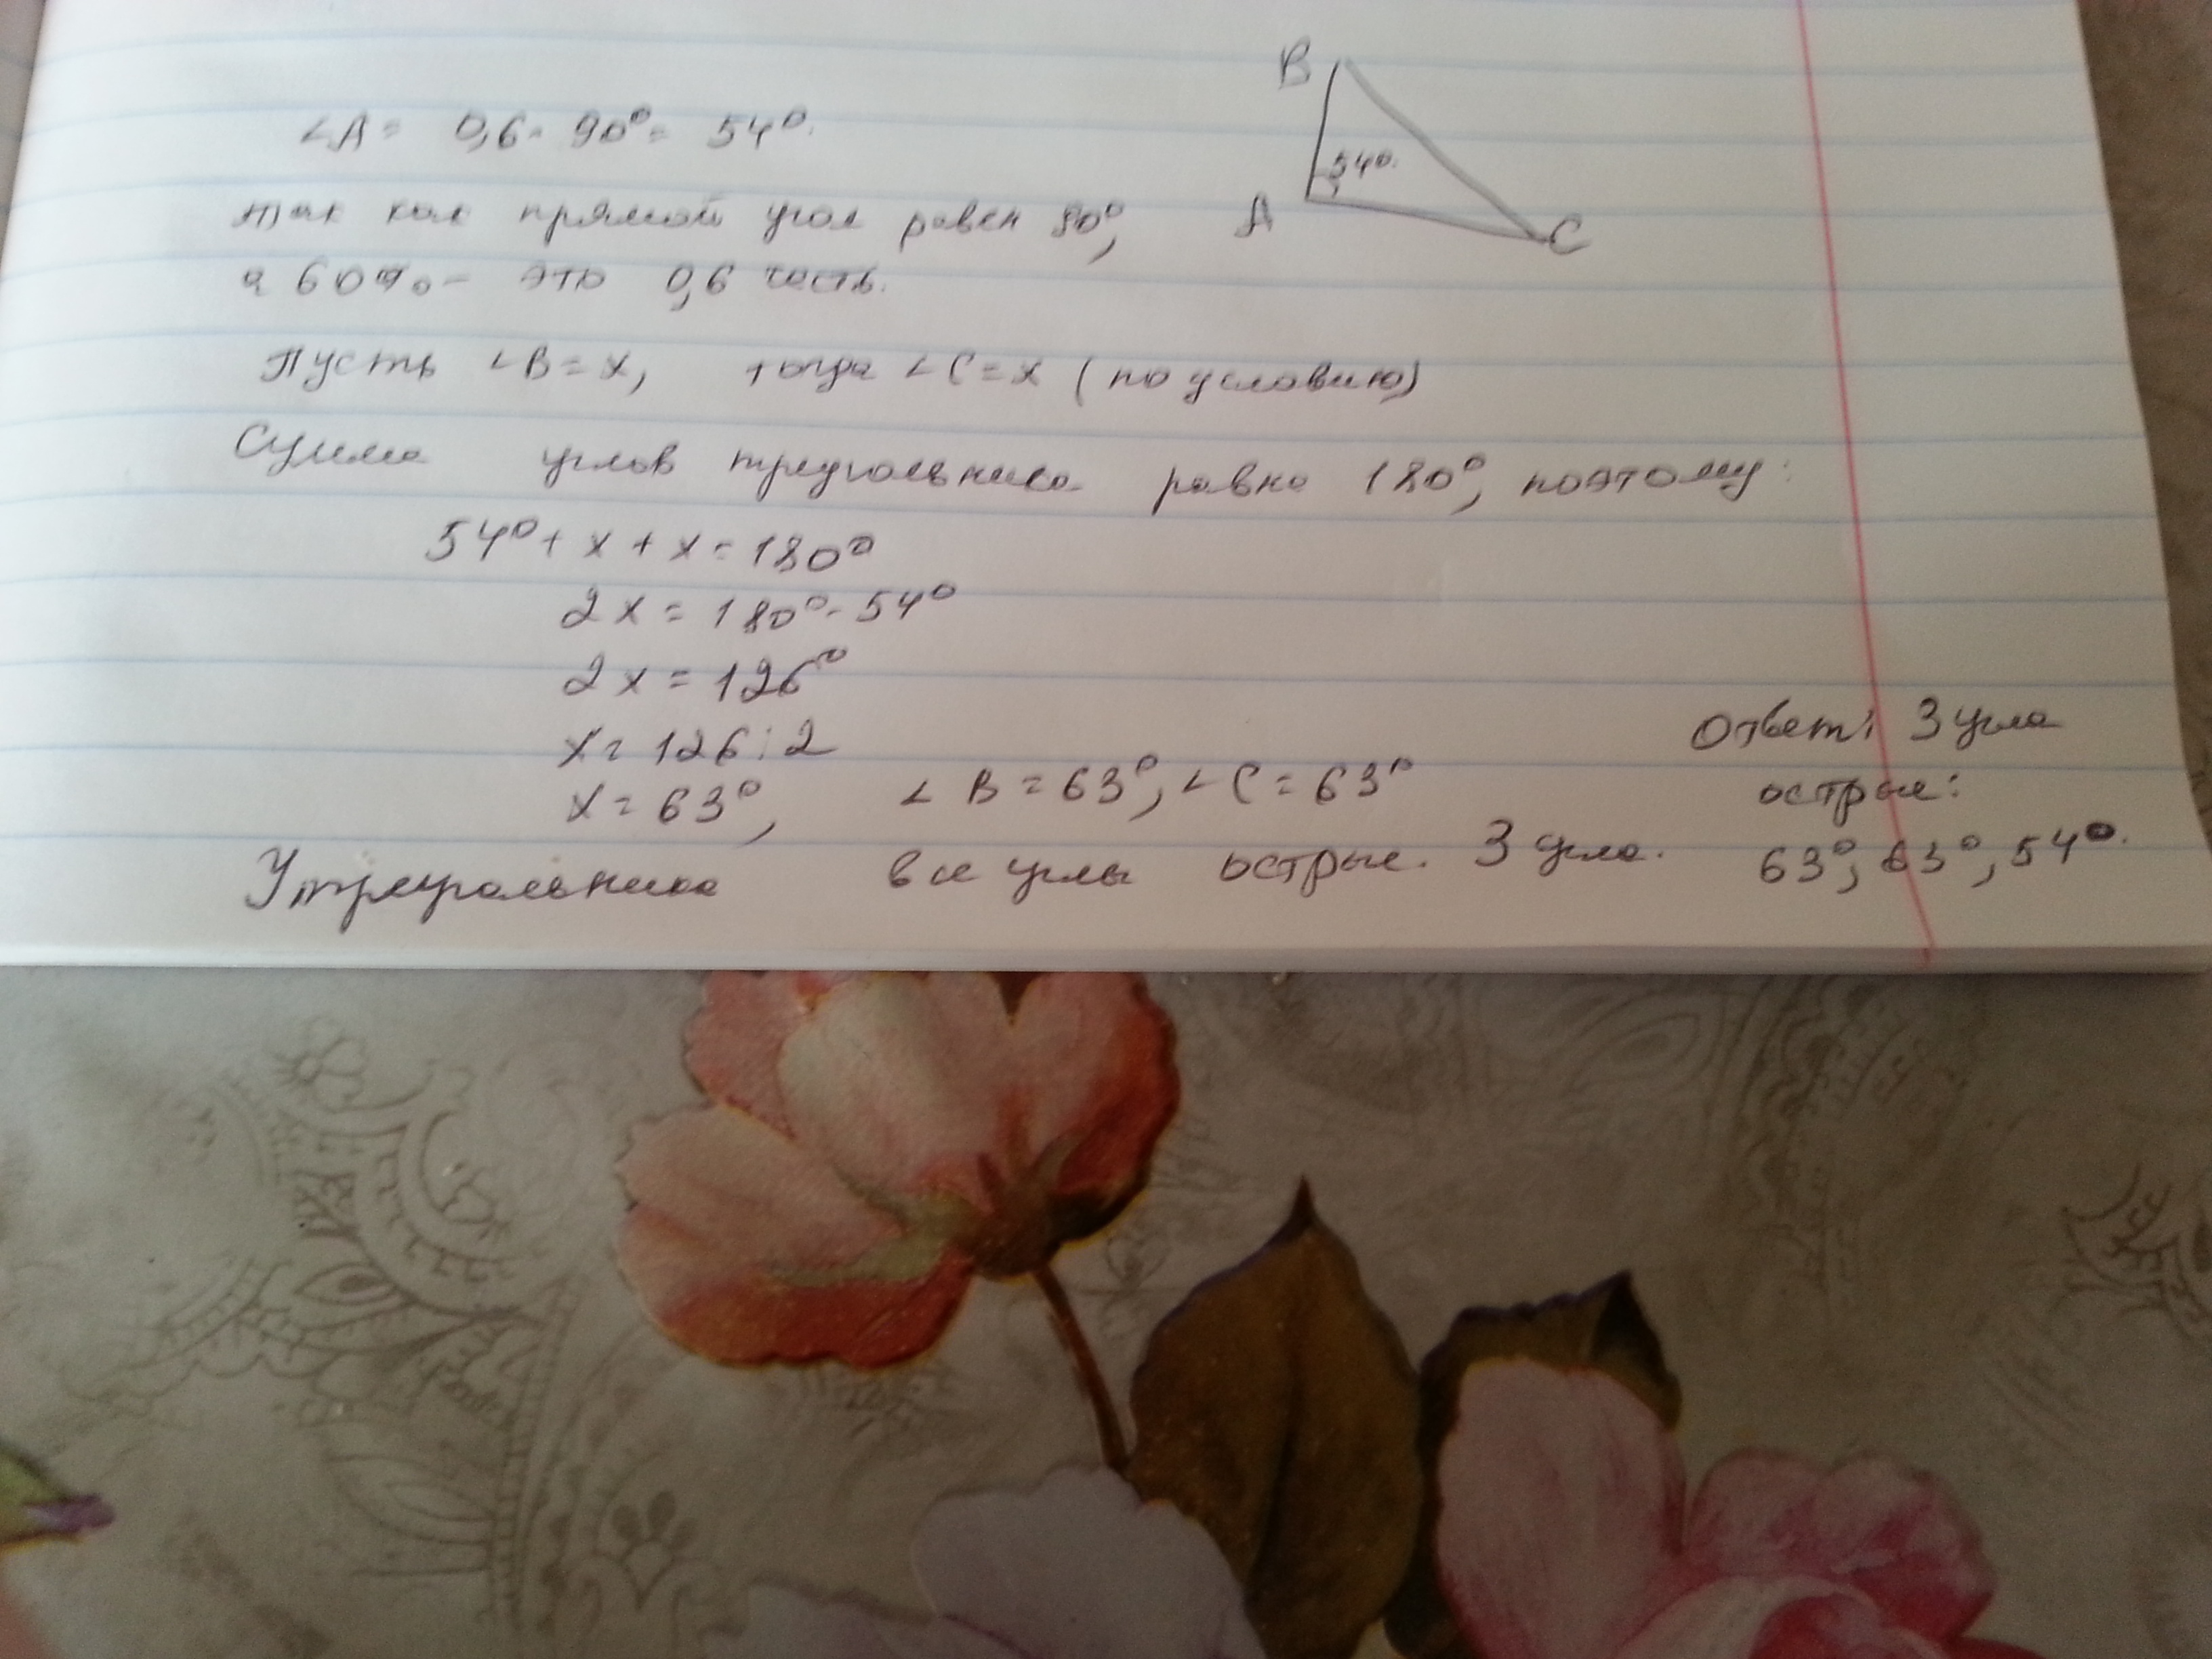 ∠A = 0,6 · 90° = 54°.
B
54°.
A
C
так как прямой угол равен 90°,
а 60% - это 0,6 часть.
Пусть ∠B = x, тогда ∠C = x (по условию)
Сумма углов треугольника равна 180°, поэтому:
54° + x + x = 180°
2x = 180° - 54°
2x = 126°
x = 126 : 2
x = 63°, ∠B = 63°, ∠C = 63°
У треугольника все углы острые. 3 угла.
Ответ: 3 угла
острые:
63°, 63°, 54°.